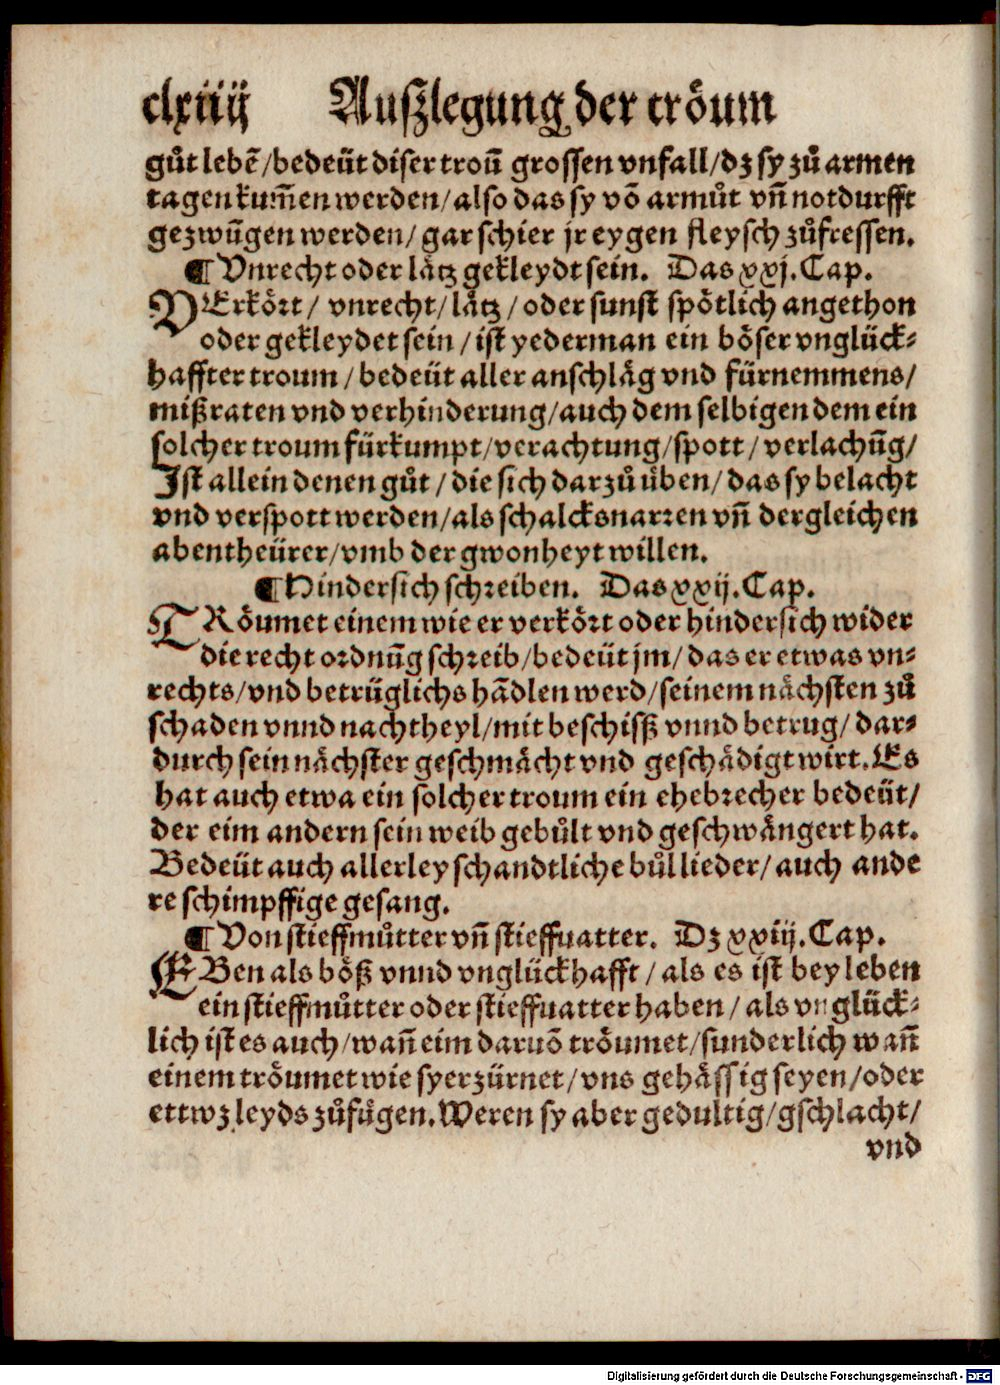 clxiiij Auſzlegung der tröum
gůt lebẽ/bedeüt diser troũ grossen vnfall/dz sy zů armen
tagen kum̃en werden/also das sy võ armůt vñ notdurfft
gezwũgen werden/gar schier jr eygen fleysch zůfressen.
¶ Vnrecht oder lätz gekleydt sein. Das xxj. Cap.
VErkört/ vnrecht/lätz/oder sunst spötlich angethon
oder gekleydet sein/ist yederman ein böser vnglück⸗
haffter troum/bedeüt aller anschläg vnd fürnemmens/
mißraten vnd verhinderung/auch dem selbigen dem ein
solcher troum fürkumpt/verachtung/spott/verlachũg/
Ist allein denen gůt/die sich darzů üben/das sy belacht
vnd verspott werden/als schalcksnarren vñ dergleichen
abentheürer/vmb der gwonheyt willen.
¶ Hindersich schreiben. Das xxij. Cap.
TRöumet einem wie er verkört oder hindersich wider
die recht ordnũg schreib/bedeüt jm/das er etwas vn⸗
rechts/vnd betrüglichs hãdlen werd/seinem nächsten zů
schaden vnnd nachtheyl/mit beschisß vnnd betrug/dar⸗
durch sein nächster geschmächt vnd geschädigt wirt. Es
hat auch etwa ein solcher troum ein ehebrecher bedeüt/
der eim andern sein weib gebůlt vnd geschwängert hat.
Bedeüt auch allerley schandtliche bůllieder/auch ande
re schimpffige gesang.
¶ Von stieffmůtter vñ stieffuatter. Dz xxiij. Cap.
EBen als böß vnnd vnglückhafft/als es ist bey leben
ein stieffmůtter oder stieffuatter haben/als vnglück⸗
lich ist es auch/wañ eim daruõ tröumet/sunderlich wañ
einem tröumet wie sy erzürnet/vns gehässig seyen/oder
ettwz leyds zůfügen. Weren sy aber gedultig/gschlacht/
vnd
Digitalisierung gefördert durch die Deutsche Forschungsgemeinschaft - DFG